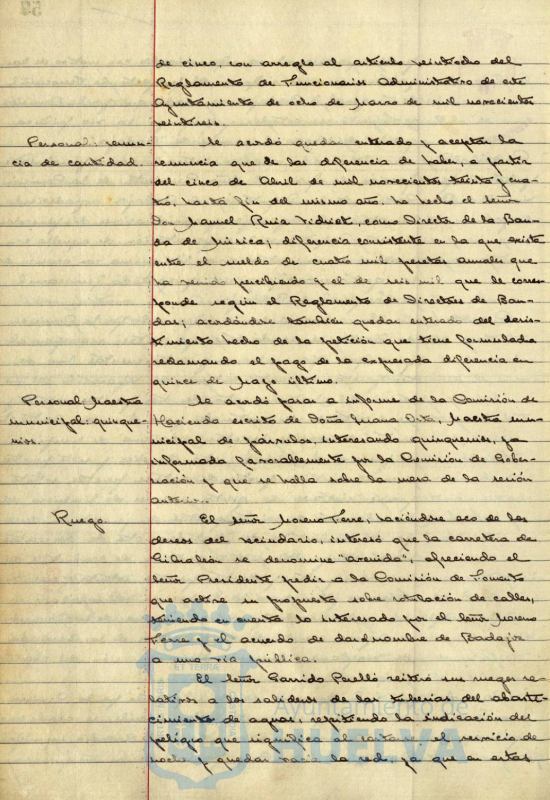 de cinco, con arreglo al artículo veintiocho del
Reglamento de Funcionarios Administrativo de este
Ayuntamiento de ocho de Marzo de mil novecientos
veintiseis.
Personal: renun-
cia de cantidad.
Se acordó quedar enterado y aceptar la
renuncia que de las diferencia de haber, a partir
del cinco de Abril de mil novecientos treinta y cua-
tro, hasta fin del mismo año, ha hecho el señor
Don Manuel Ruiz Vidriet, como Director de la Ban-
da de Música; diferencia consistente en la que existe
entre el sueldo de cuatro mil pesetas anuales que
ha venido percibiendo y el de seis mil que le corres-
ponde según el Reglamento de Directores de Ban-
das; acordándose también quedar enterado del desis-
timiento hecho de la petición que tiene formulada
reclamando el pago de la expresada diferencia en
quince de Mayo último.
Personal: Maestra
municipal: quinque-
nios.
Se acordó pasar a informe de la Comisión de
Hacienda escrito de Doña Juana Orta, Maestra mu-
nicipal de párvulos, interesando quinquenios, ya
informada favorablemente por la Comisión de Gober-
nación y que se halla sobre la mesa de la sesión
anterior.
Ruego.
El señor Moreno Ferre, haciéndose eco de los
deseos del vecindario, interesó que la carretera de
Gibraleón se denomine "avenida", ofreciendo el
señor Presidente pedir a la Comisión de Fomento
que active su propuesta sobre rotulación de calles,
teniendo en cuenta lo interesado por el señor Moreno
Ferre y el acuerdo de dar el nombre de Badajoz
a una vía pública.
El señor Garrido Perelló reiteró sus ruegos re-
lativos a los salideros de las tuberías del abaste-
cimiento de aguas, repitiendo la indicación del
peligro que significa al cortarse el servicio de
noche y quedar vacía la red, ya que en estas
ET TERRA
Ayuntamiento de
HUELVA